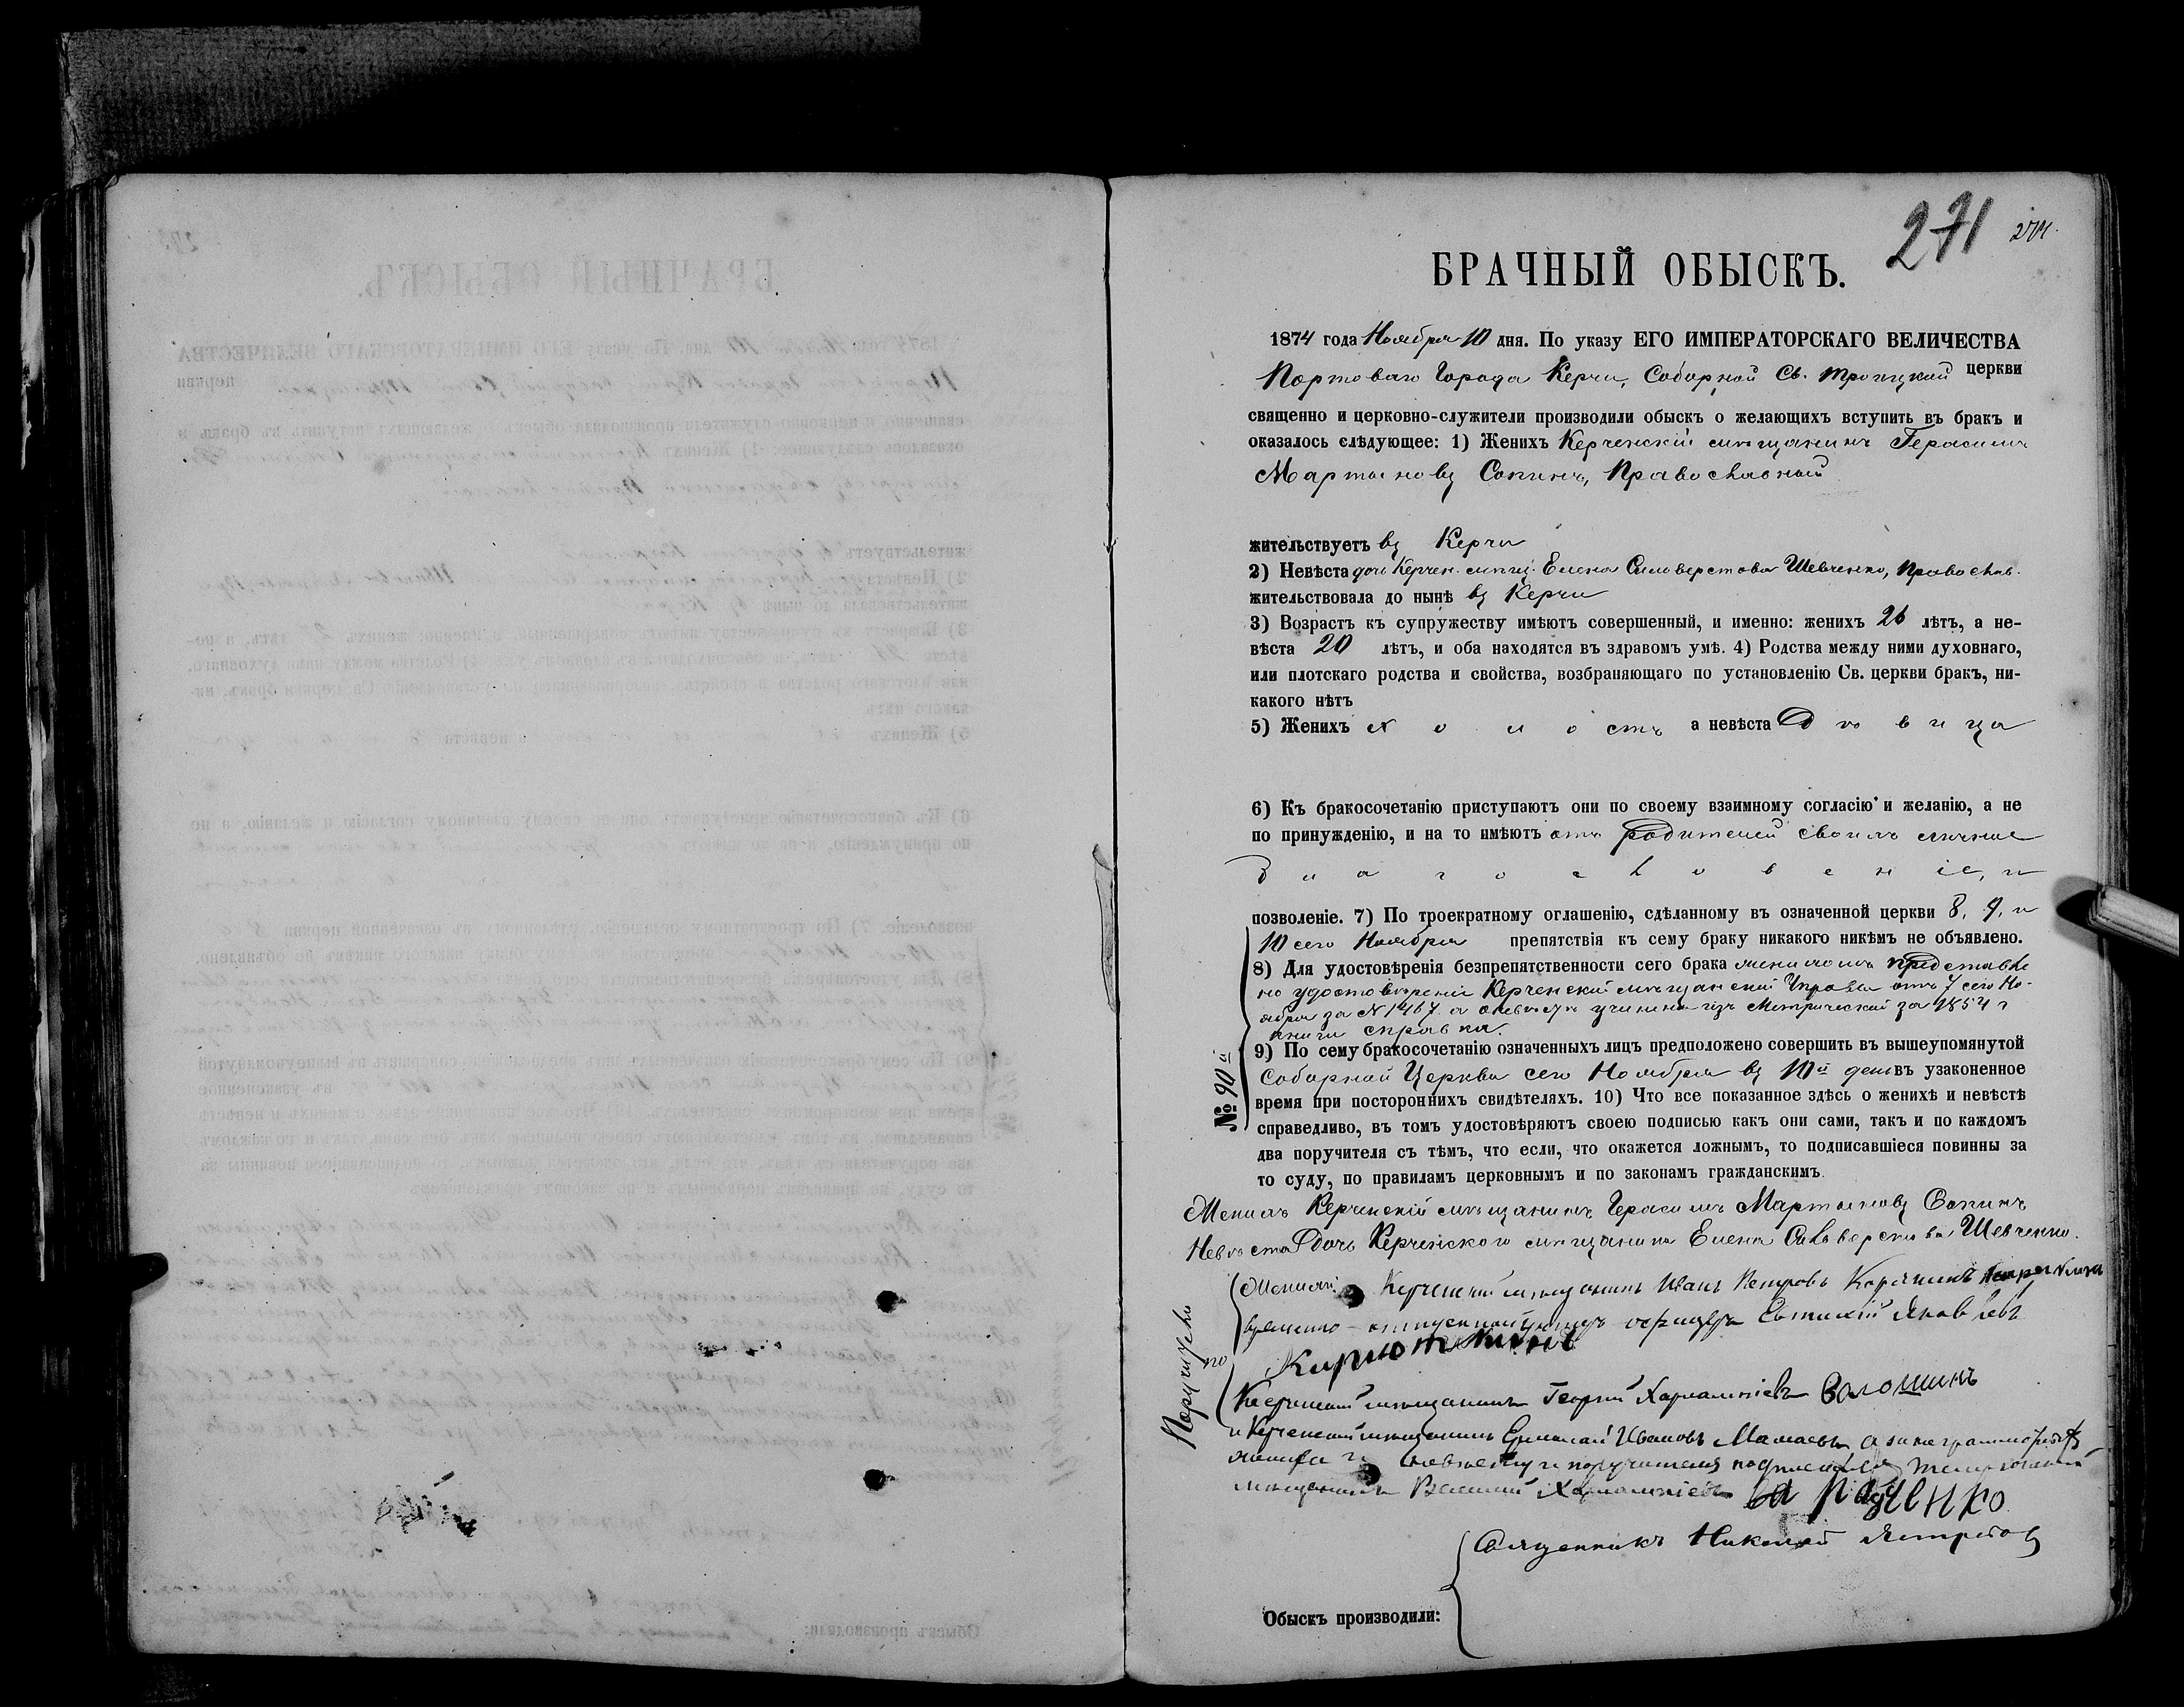 271
БРАЧНЫЙ ОБЫСКЪ.
1874 года Ноября 10 дня. По указу ЕГО ИМПЕРАТОРСКАГО ВЕЛИЧЕСТВА
Портоваго Города Керчи, Соборной Св. Троицкой церкви
священно и церковно-служители производили обыскъ о желающихъ вступить въ бракъ и
оказалось слѣдующее: 1) Женихъ Керченскій мѣщанинъ Герасимъ
Мартыновъ Сопинъ, Православный
жительствуетъ въ Керчи
2) Невѣста дочь Керчен. мѣщ. Елена Сильверстова Шевченко, Православ.
жительствовала до нынѣ въ Керчи
3) Возрастъ къ супружеству имѣютъ совершенный, и именно: женихъ 26 лѣтъ, а не-
вѣста 20 лѣтъ, и оба находятся въ здравомъ умѣ. 4) Родства между ними духовнаго,
или плотскаго родства и свойства, возбраняющаго по установленію Св. церкви бракъ, ни-
какого нѣтъ
5) Женихъ холостъ а невѣста Дѣвица
6) Къ бракосочетанію приступаютъ они по своему взаимному согласію и желанію, а не
по принужденію, и на то имѣютъ отъ родителей своихъ личное
благословеніе, и
позволеніе. 7) По троекратному оглашенію, сдѣланному въ означенной церкви 8, 9, и
10 сего Ноября препятствія къ сему браку никакого никѣмъ не объявлено.
8) Для удостовѣренія безпрепятственности сего брака женихомъ представле
но удостовѣреніе Керченской мѣщанской Управы отъ 7 сего Но-
ября за № 1467. а о невѣстѣ учинена изъ Метрической за 1854 г
книги справка.
9) По сему бракосочетанію означенныхъ лицъ предположено совершить въ вышеупомянутой
Соборной Церкви сего Ноября въ 10й день въ узаконенное
время при постороннихъ свидѣтеляхъ. 10) Что все показанное здѣсь о женихѣ и невѣстѣ
справедливо, въ томъ удостовѣряютъ своею подписью какъ они сами, такъ и по каждомъ
два поручителя съ тѣмъ, что если, что окажется ложнымъ, то подписавшіеся повинны за
то суду, по правиламъ церковнымъ и по законамъ гражданскимъ.
№ 90й
Женихъ Керченскій мѣщанинъ Герасимъ Мартыновъ Сопинъ
Невѣста дочь Керченскаго мѣщанина Елена Сильверстова Шевченко.
Поручители
по
Керченскій мѣщанинъ Иванъ Петровъ
временно-отпускной унтеръ офицеръ Евтихій Яковлевъ
Керченскій мѣщанинъ Георгій Харлампіевъ Валошинъ
и Керченскій мѣщанинъ Ермолай Ивановъ Мамаевъ, а за неграмотныхъ
жениха и невѣсту и поручителя
мѣщанинъ Василій Харлампіевъ Радченко
Священникъ Николай Ястребовъ
Обыскъ производили: